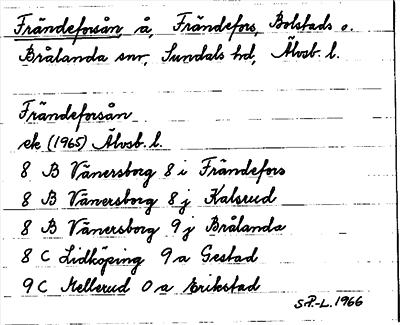 Frändeforsån, å, Frändefors, Bolstads o.
Brålanda snr, Sundals hd, Älvsb. l.
Frändeforsån
ek (1965) Älvsb. l.
8 B Vänersborg 8 i Frändefors
8 B Vänersborg 8 j Kalsrud
8 B Vänersborg 9 j Brålanda
8 C Lidköping 9 a Gestad
9 C Mellerud 0 a Erikstad
S.P.-L. 1966